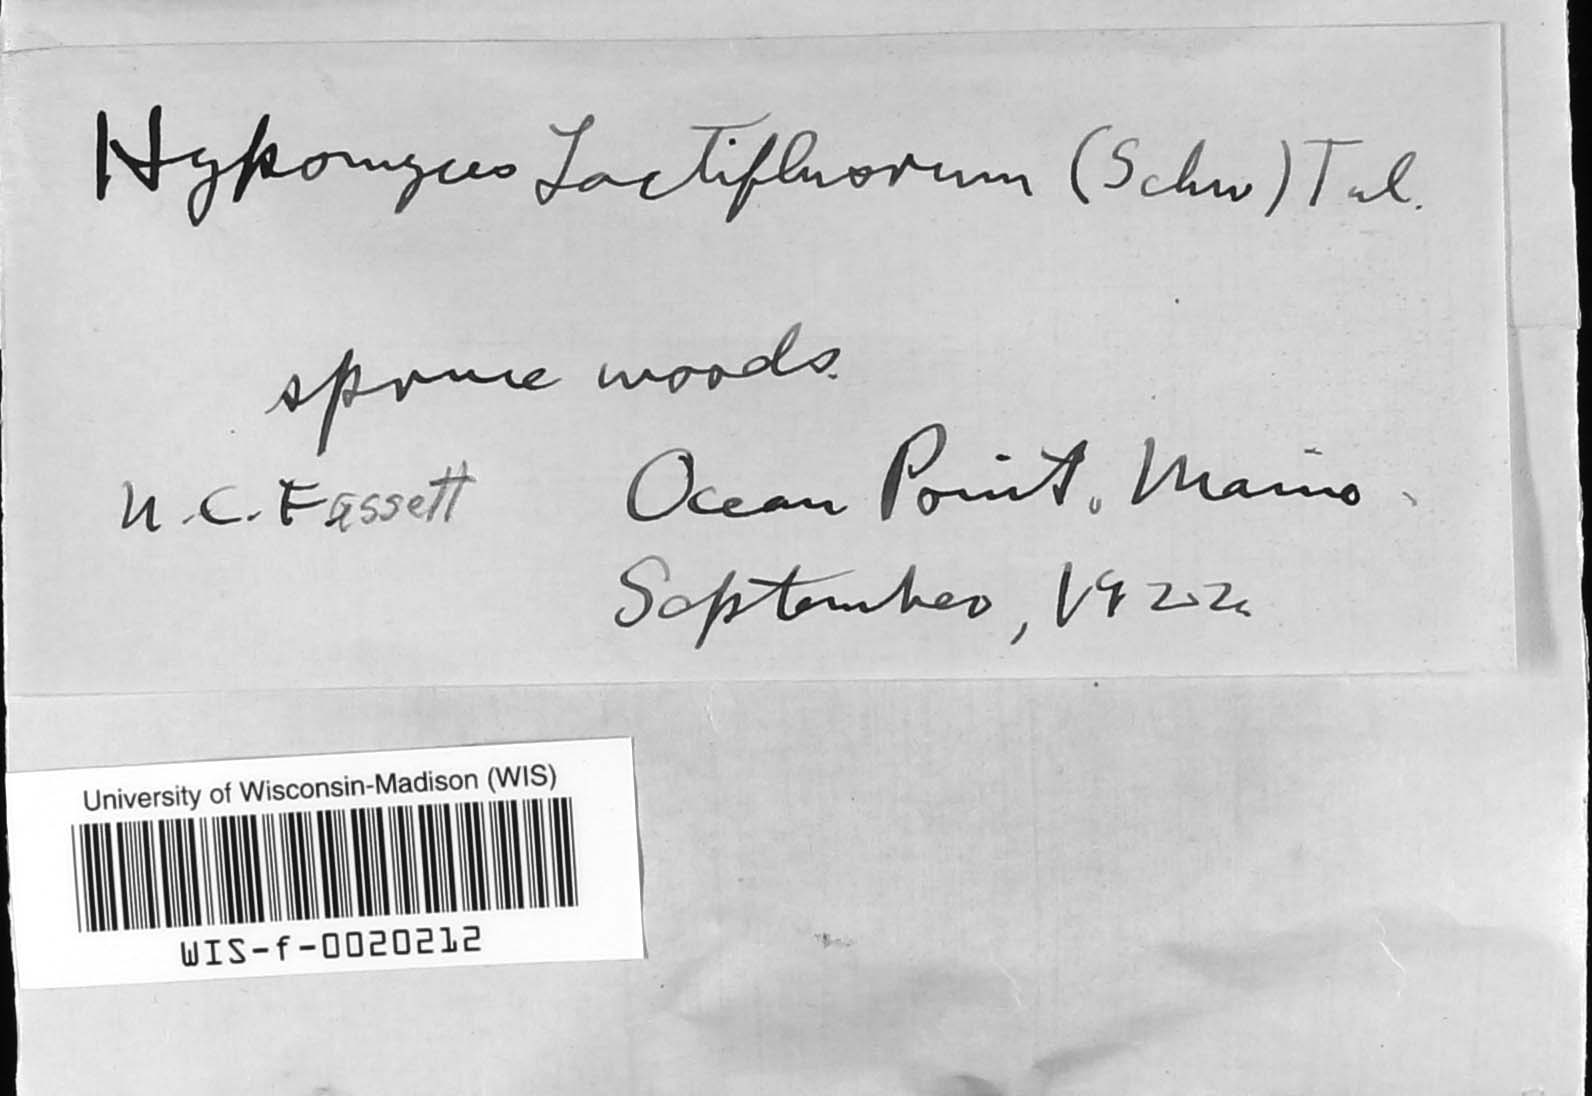 Hypomyces Lactifluorum (Schw) Tul.
spruce woods.
N.C. Fassett
Ocean Point, Maine.
September, 1922
University of Wisconsin-Madison (WIS)
WIS-f-0020212